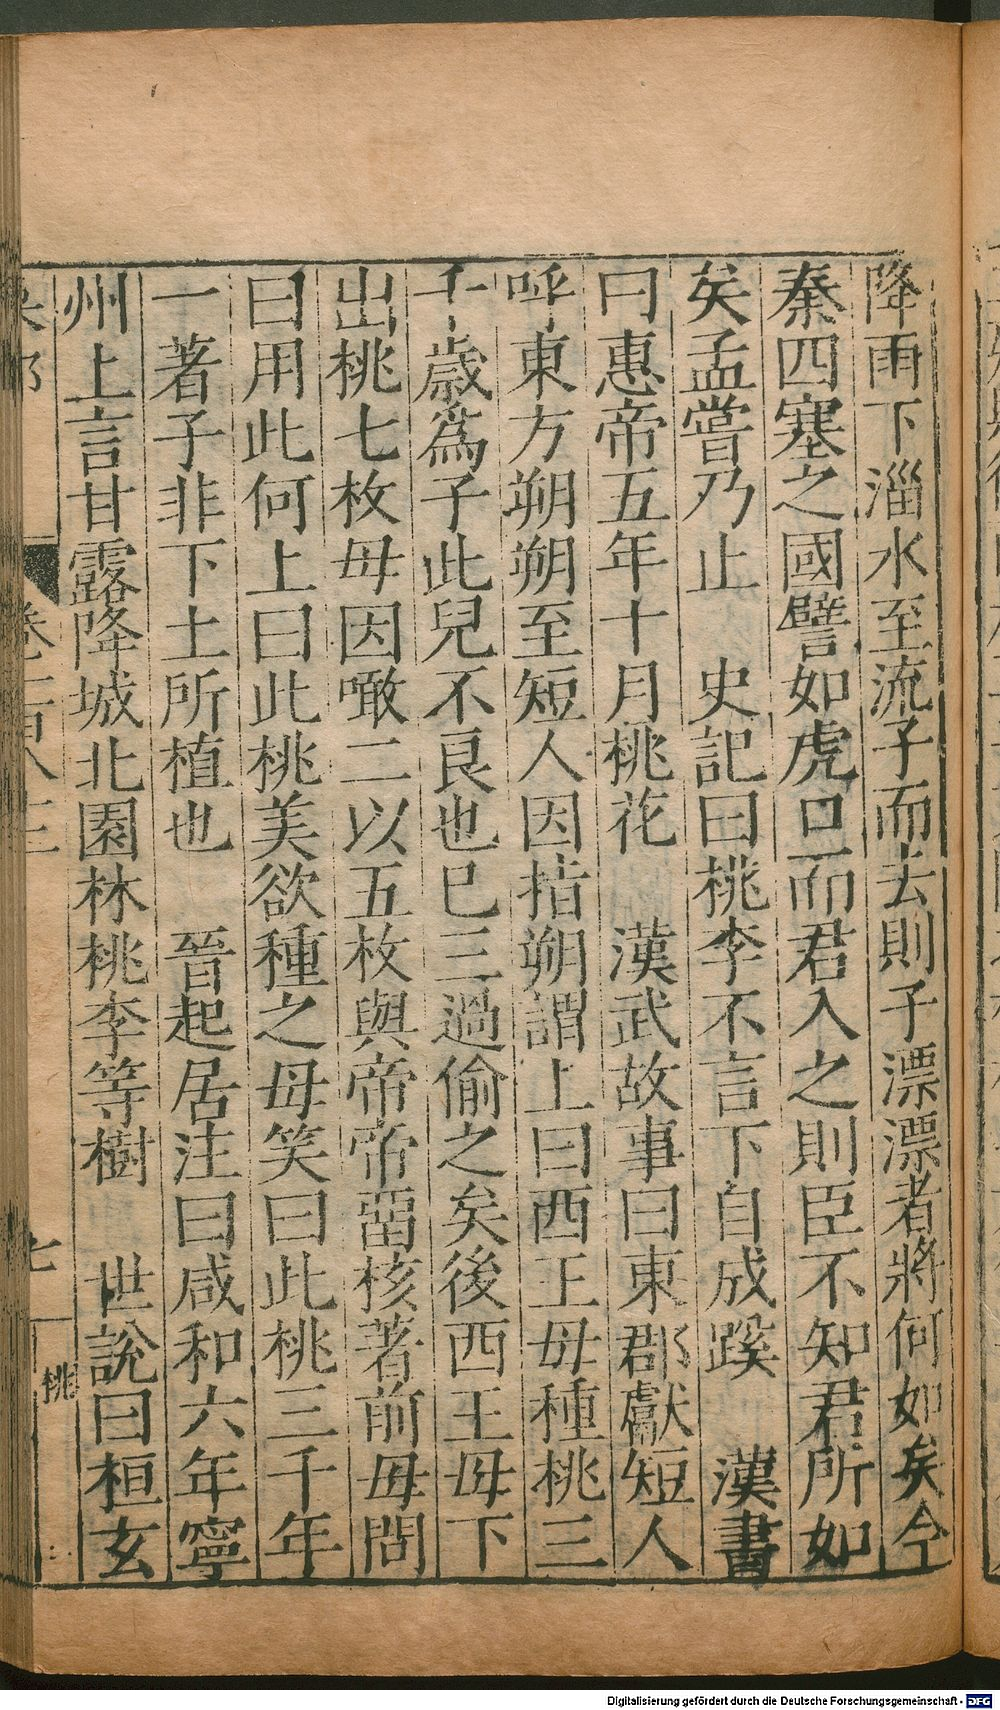 降雨下淄水至流子而去則子漂漂者將何如矣今
秦四塞之國譬如虎口而君入之則臣不知君所如
矣孟嘗乃止　史記曰桃李不言下自成蹊　漢書
曰惠帝五年十月桃花　漢武故事曰東郡獻短人
呼東方朔朔至短人因指朔謂上曰西王母種桃三
千歲爲子此兒不良也已三過偷之矣後西王母下
出桃七枚母因噉二以五枚與帝帝留核著前母問
曰用此何上曰此桃美欲種之母笑曰此桃三千年
一著子非下土所植也　晉起居注曰咸和六年寧
州上言甘露降城北園林桃李等樹　世說曰桓玄
七
桃
Digitalisierung gefördert durch die Deutsche Forschungsgemeinschaft - DFG